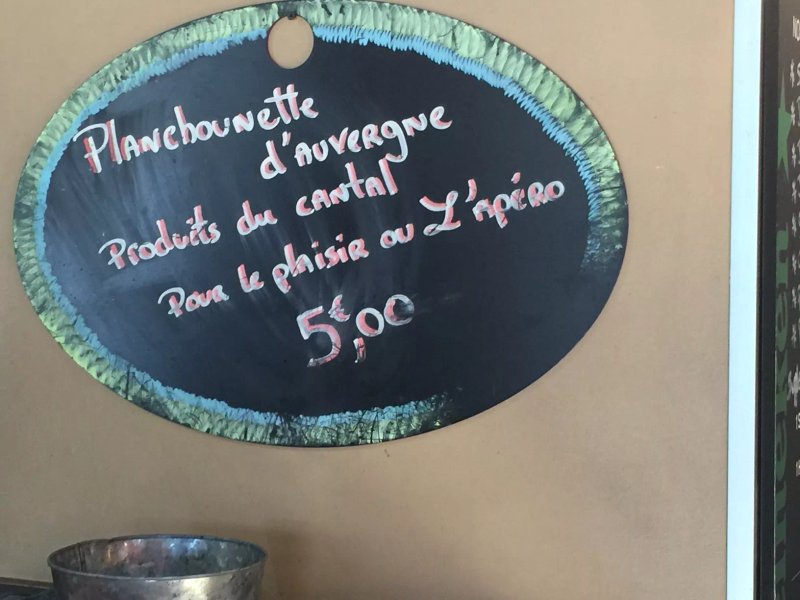 Planchounette
d'Auvergne
Produits du cantal
Pour le plaisir ou L'apéro
5€,00